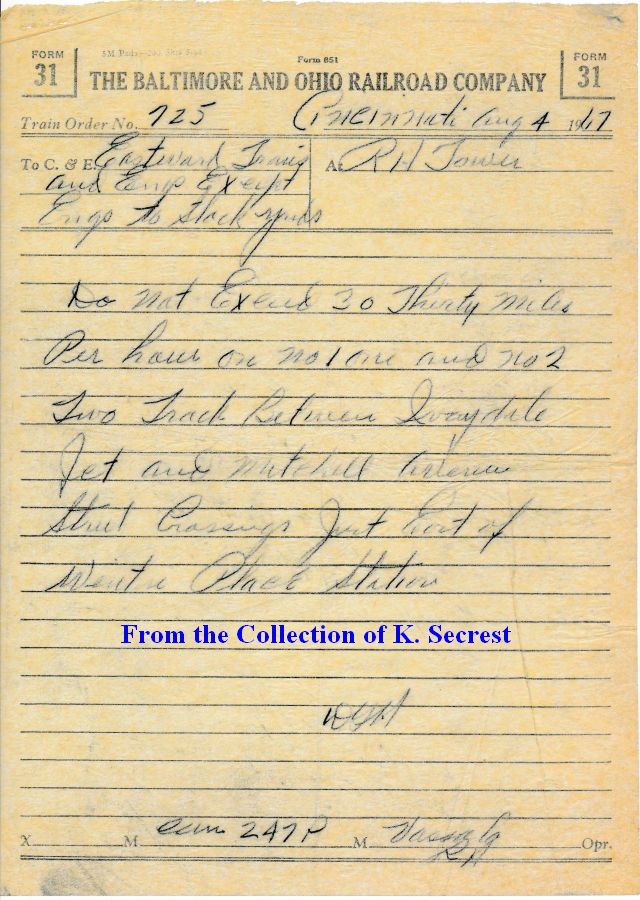 FORM 31
5M Pads
Form 851
FORM 31
THE BALTIMORE AND OHIO RAILROAD COMPANY
Train Order No. 725 Cincinnati Aug 4 1947
To C. & E. Eastward Trains At RH Tower
and Engs Except
Engs to Stock yards
Do not Exceed 30 Thirty miles
Per hour on no 1 one and no 2
Two Track Between Ivorydale
Jct and Mitchell Avenue
Street Crossings Just East of
Winton Place Station
From the Collection of K. Secrest
X M com 247 P M Opr.